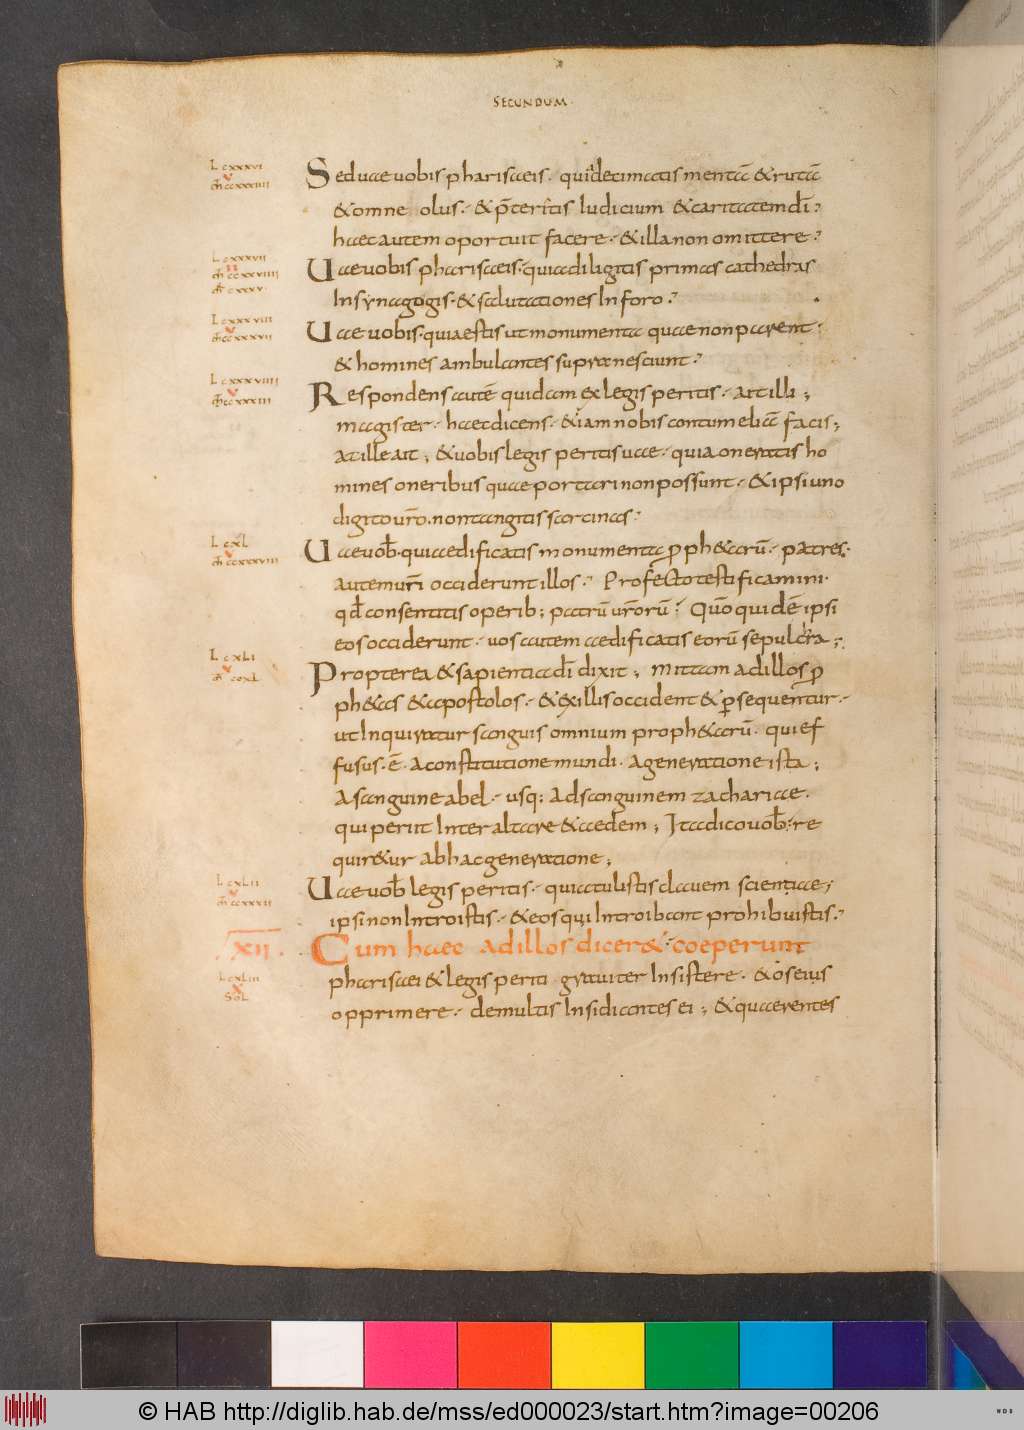 SECUNDUM
L cxxxvi
Sed uae uobis pharisaeis. qui decimatis mentã & rutã
v
m̄ ccxxxiiii
& omne olus. & p̄teritis Iudicium & caritatem dī?
haec autem oportuit facere. & illa non omittere?
L cxxxvii
Uae uobis pharisaeis. quia diligitis primas cathedras
ii
m̄ ccxxviiii
m̄r cxxxv
In synagogis. & salutationes In foro?
L cxxxviii
Uae uobis. quia estis ut monumenta quae non parent.
v
m̄ ccxxxvii
& homines ambulantes supra nesciunt?
L cxxxviiii
Respondens autē quidam ex legis peritis. ait illi;
v
m̄ ccxxxiii
magister. haec dicens. & iam nobis contumeliā facis;
at ille ait; & uobis legis peritis uae. quia oneratis ho
mines oneribus quae portari non possunt. & ipsi uno
digito ur̄o. non tangitis sarcinas?
L cxL
Uae uob̄. qui aedificatis monumenta ꝓph&arū. patres.
v
m̄ ccxxxviii
autem ur̄i occiderunt illos? Profecto testificamini.
qd̄ consentitis operib; patrū ur̄orū? Quō quidē ipsi
eos occiderunt. uos autem aedificatis eorū sepulcra;
L cxLi
Propterea & sapientia dī dixit; mittam ad illos ꝓ
v
m̄ ccxL
ph&as & apostolos. & ex illis occident & ꝑsequentur.
ut Inquiratur sanguis omnium proph&arū. qui ef
fusus. ē. A constitutione mundi. A generatione ista;
A sanguine abel. usq: Ad sanguinem zachariae.
qui periit Inter altare & aedem; Ita dico uob̄. re
quir&ur ab hac generatione;
L cxLii
Uae uob̄ legis peritis. quia tulistis clauem scientiae;
v
m̄ ccxxxii
ipsi non Introistis. & eos qui Introibant prohibuistis?
XII.
Cum haec ad illos dicer&. coeperunt
L cxLiii
pharisaei & legis periti grauiter Insistere. & os eius
x
SoL
opprimere. de multis Insidiantes ei; & quaerentes
© HAB http://diglib.hab.de/mss/ed000023/start.htm?image=00206